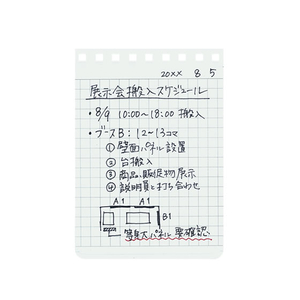 20XX 8 5
展示会搬入スケジュール
・8/9 10:00~18:00 搬入
・ブースB:12~13コマ
①壁面パネル設置
②台搬入
③商品・販促物展示
④説明員と打ち合わせ
A1 A1
B1
等身大パネル 要確認